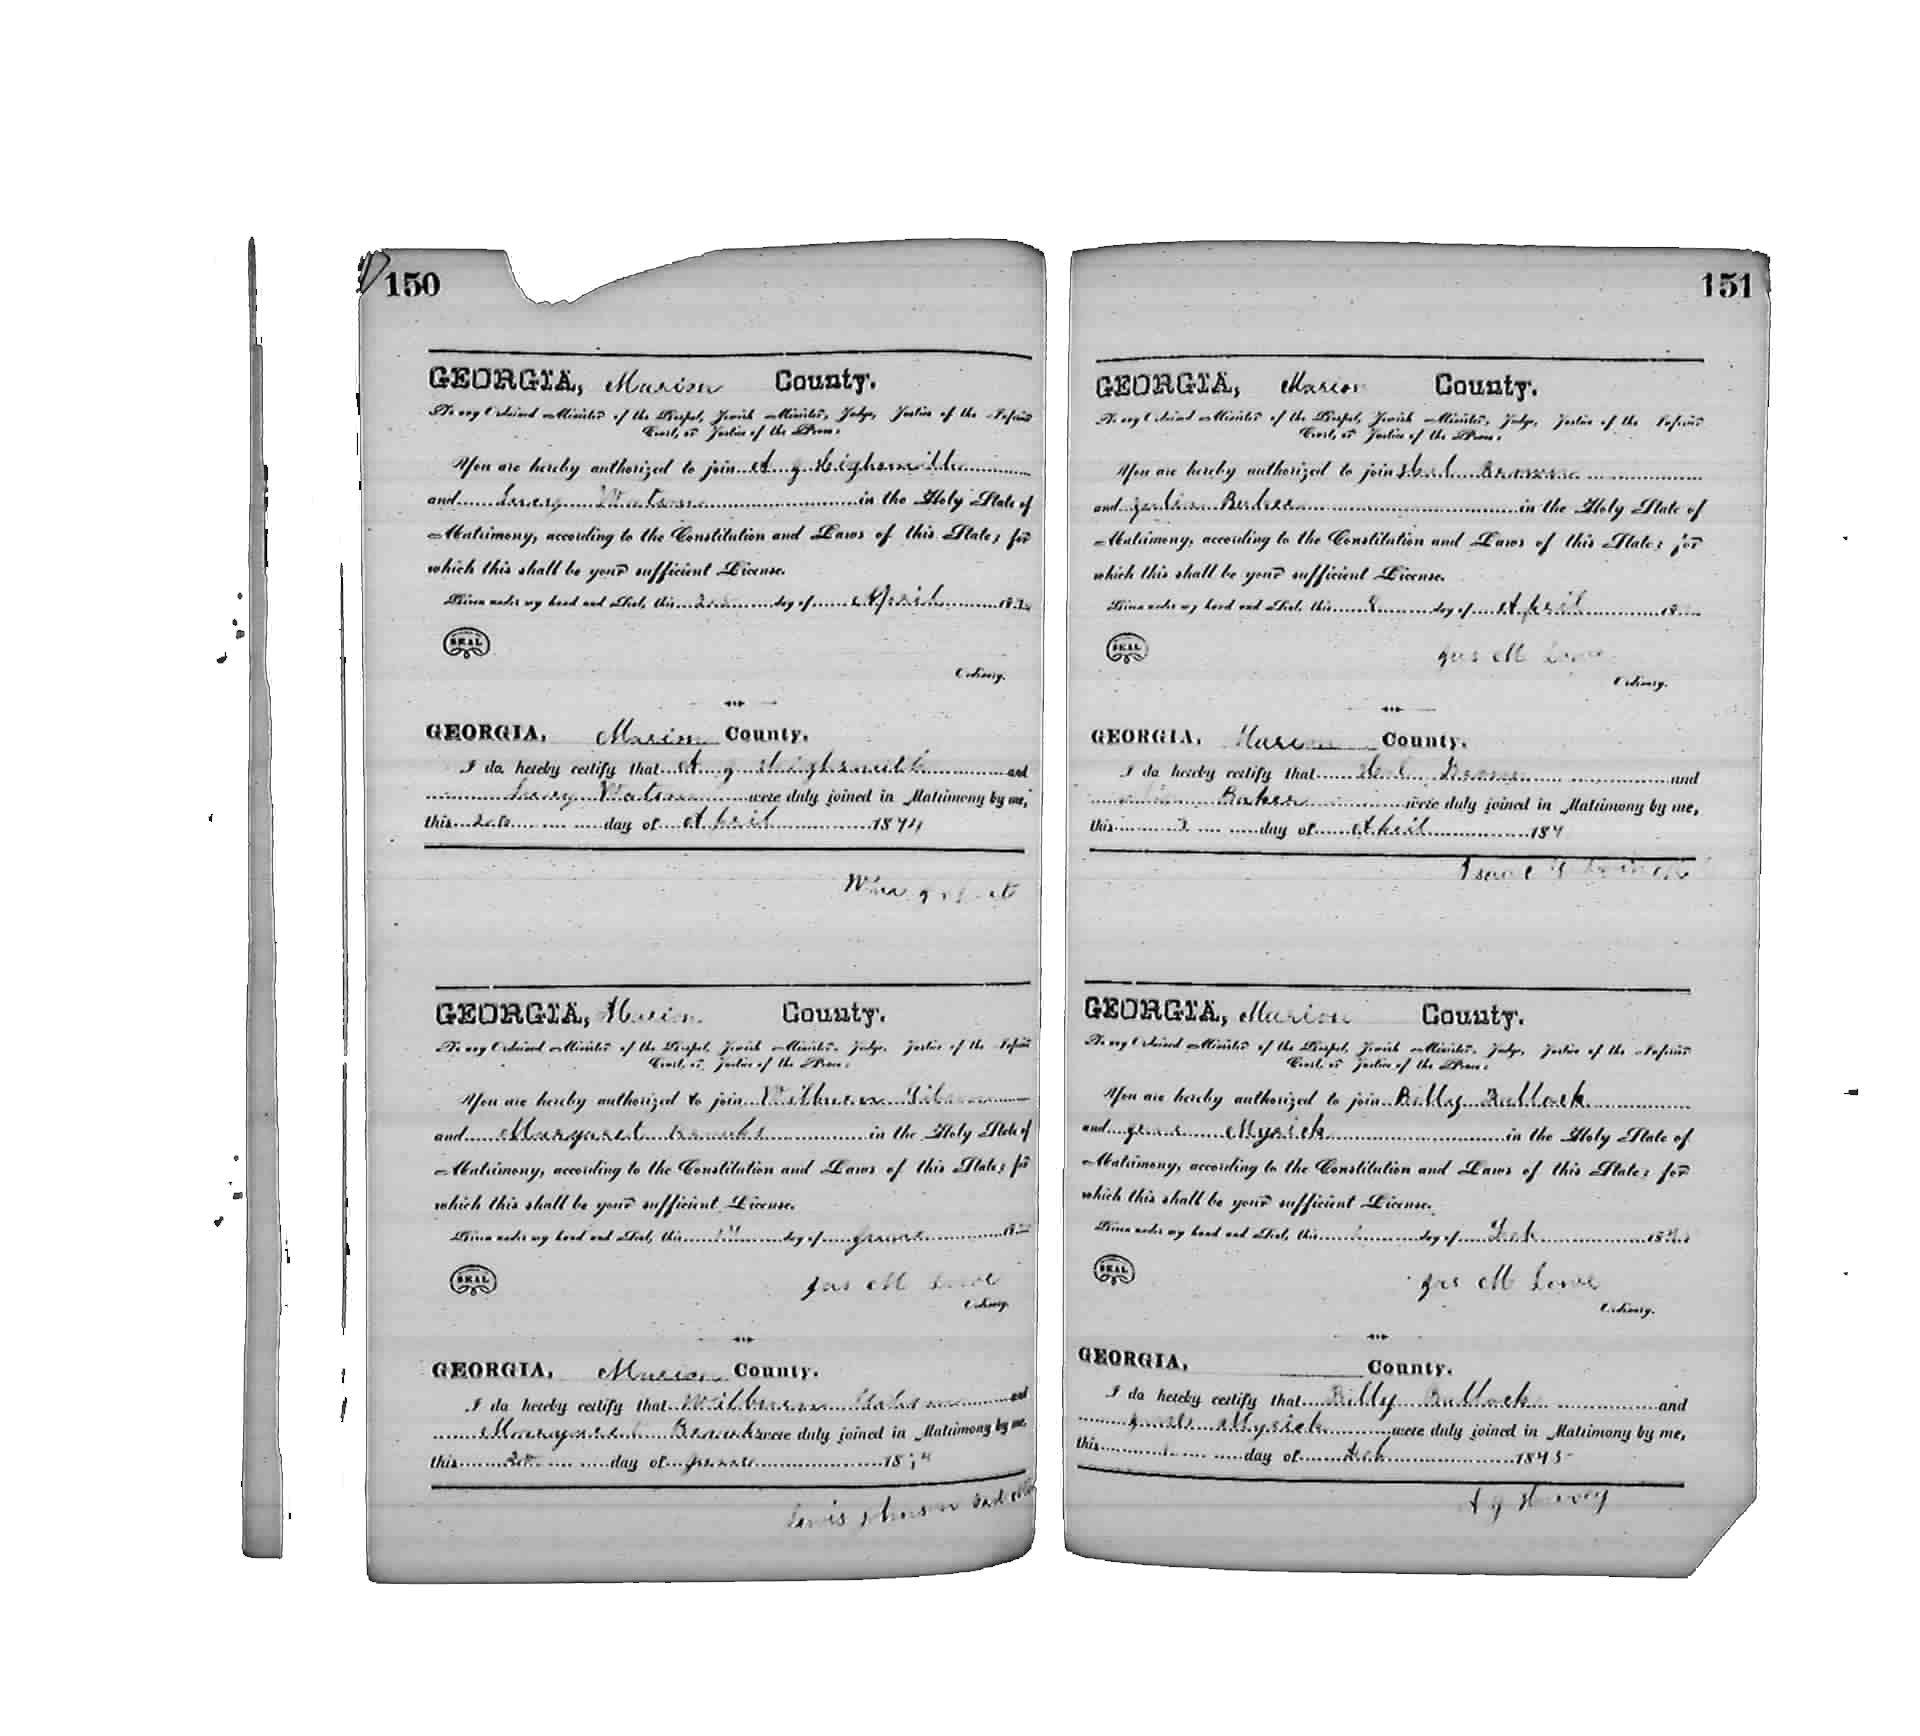 150
GEORGIA, Marion County.
To any Ordained Minister of the Gospel, Jewish Minister, Judge, Justice of the Inferior
Court, or Justice of the Peace:
You are hereby authorized to join A J Highsmith
and Lucy Watson in the Holy State of
Matrimony, according to the Constitution and Laws of this State; for
which this shall be your sufficient License.
Given under my hand and Seal, this day of April 187
SEAL
Ordinary.
GEORGIA, Marion County.
I do hereby certify that A J Highsmith and
Lucy Watson were duly joined in Matrimony by me,
this day of April 1874
GEORGIA, Marion County.
To any Ordained Minister of the Gospel, Jewish Minister, Judge, Justice of the Inferior
Court, or Justice of the Peace:
You are hereby authorized to join Wilburn
and Margaret in the Holy State of
Matrimony, according to the Constitution and Laws of this State; for
which this shall be your sufficient License.
Given under my hand and Seal, this day of June 18
SEAL
Jas M Lowe
Ordinary.
GEORGIA, Marion County.
I do hereby certify that Wilburn and
Margaret were duly joined in Matrimony by me,
this day of June 18
Lewis Johnson
151
GEORGIA, Marion County.
To any Ordained Minister of the Gospel, Jewish Minister, Judge, Justice of the Inferior
Court, or Justice of the Peace:
You are hereby authorized to join
and Baker in the Holy State of
Matrimony, according to the Constitution and Laws of this State; for
which this shall be your sufficient License.
Given under my hand and Seal, this day of April 18
SEAL
Jas M Lowe
Ordinary.
GEORGIA, Marion County.
I do hereby certify that and
Baker were duly joined in Matrimony by me,
this day of April 187
Isaac
GEORGIA, Marion County.
To any Ordained Minister of the Gospel, Jewish Minister, Judge, Justice of the Inferior
Court, or Justice of the Peace:
You are hereby authorized to join Billy Bullock
and Myrick in the Holy State of
Matrimony, according to the Constitution and Laws of this State; for
which this shall be your sufficient License.
Given under my hand and Seal, this day of Feb 187
SEAL
Jas M Lowe
Ordinary.
GEORGIA, County.
I do hereby certify that Billy Bullock and
Myrick were duly joined in Matrimony by me,
this day of Feb 1875
A J Harvey